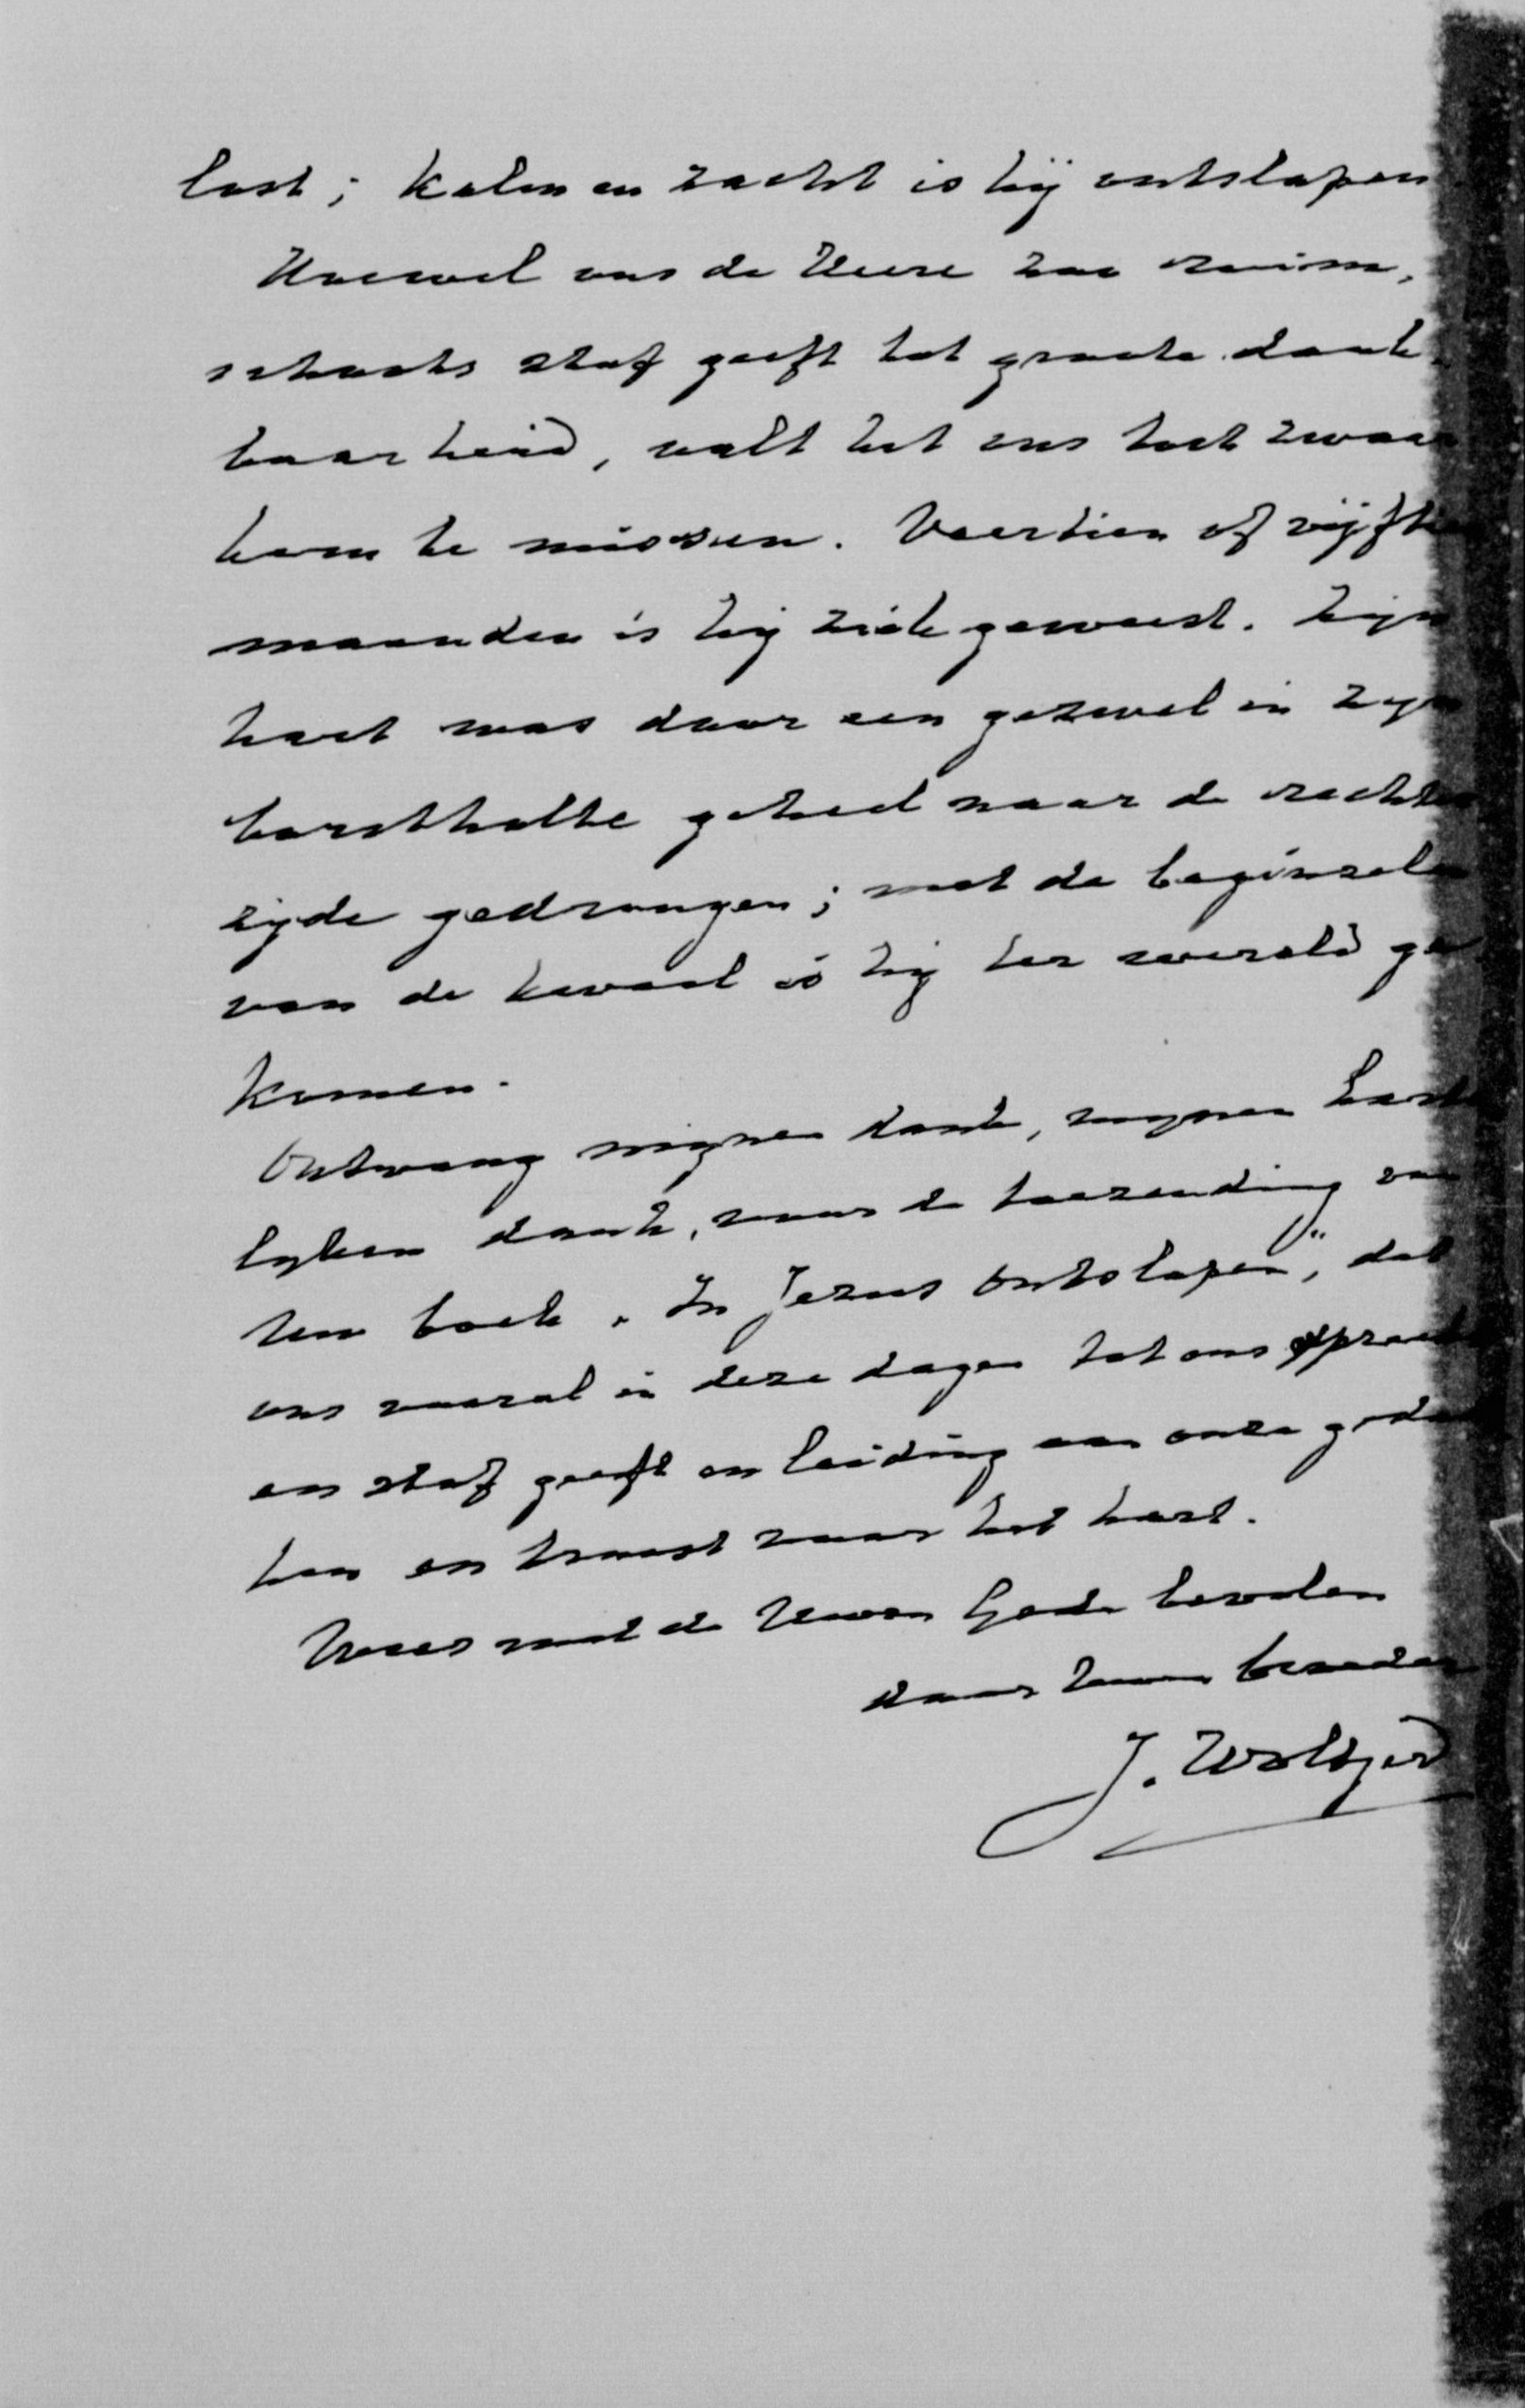 lost; kalm en zacht is hij ontslapen
Hoewel ons de Heere zoo ruim,
schoots stof geeft tot groote dank
baarheid, valt het ons toch zwaar
hem te missen. Veertien of vijftien
maanden is hij ziek geweest. Zijn
hart was door een gezwel in zijn
borstholte geheel naar de rechter
zijde gedrongen; met de beginselen
van de kwaal is hij ter wereld ge
komen.
Ontvang mijnen dank, mijnen harte
lijken dank, voor de toezending van
Uw boek "In Jezus Ontslapen", dat
ons vooral in deze dagen tot ons spreekt
en stof geeft en leiding aan onze gedach
ten en troost voor het hart.
Wees met de Uwen Gode bevolen
door Uwen broeder
J. Woltjer